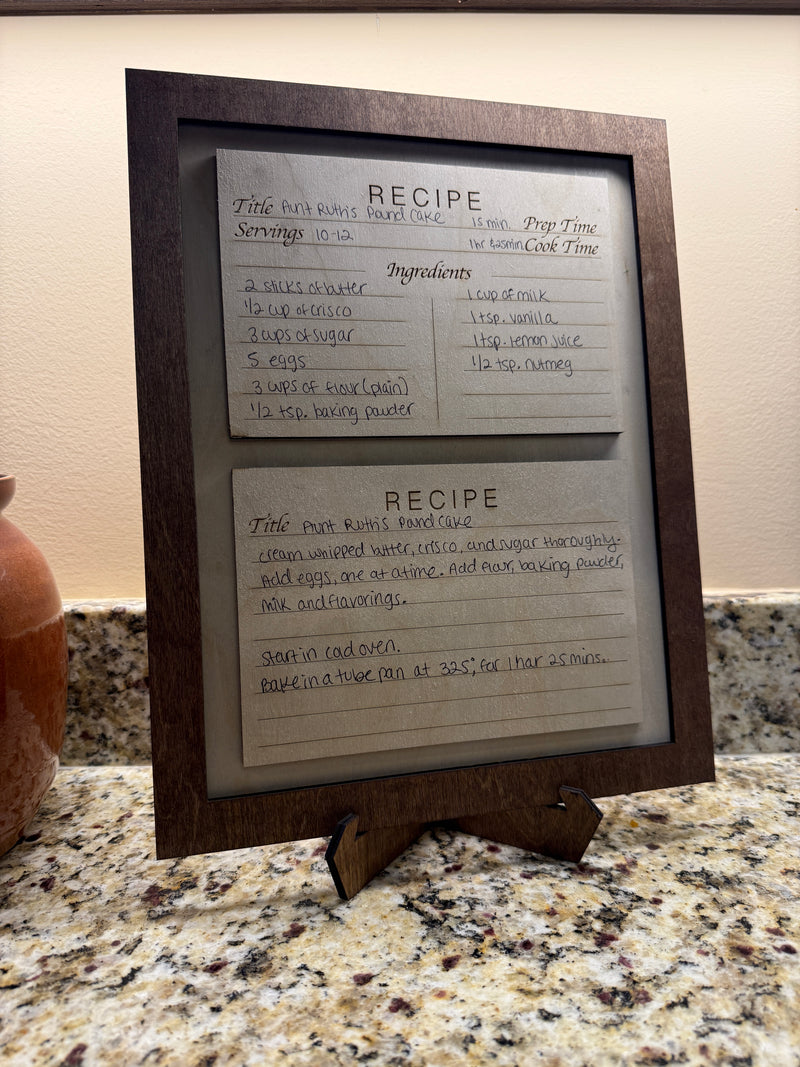 RECIPE
Title Aunt Ruth's Pound Cake 15 min. Prep Time
Servings 10-12 1hr & 25min. Cook Time
Ingredients
2 sticks of butter
1/2 cup of crisco
3 cups of sugar
5 eggs
3 cups of flour (plain)
1/2 tsp. baking powder
1 cup of milk
1 tsp. vanilla
1 tsp. lemon juice
1/2 tsp. nutmeg
RECIPE
Title Aunt Ruth's Pound Cake
Cream whipped butter, crisco, and sugar thoroughly.
Add eggs, one at a time. Add flour, baking powder,
milk and flavorings.
Start in cold oven.
Bake in a tube pan at 325°, for 1 hour 25 mins.